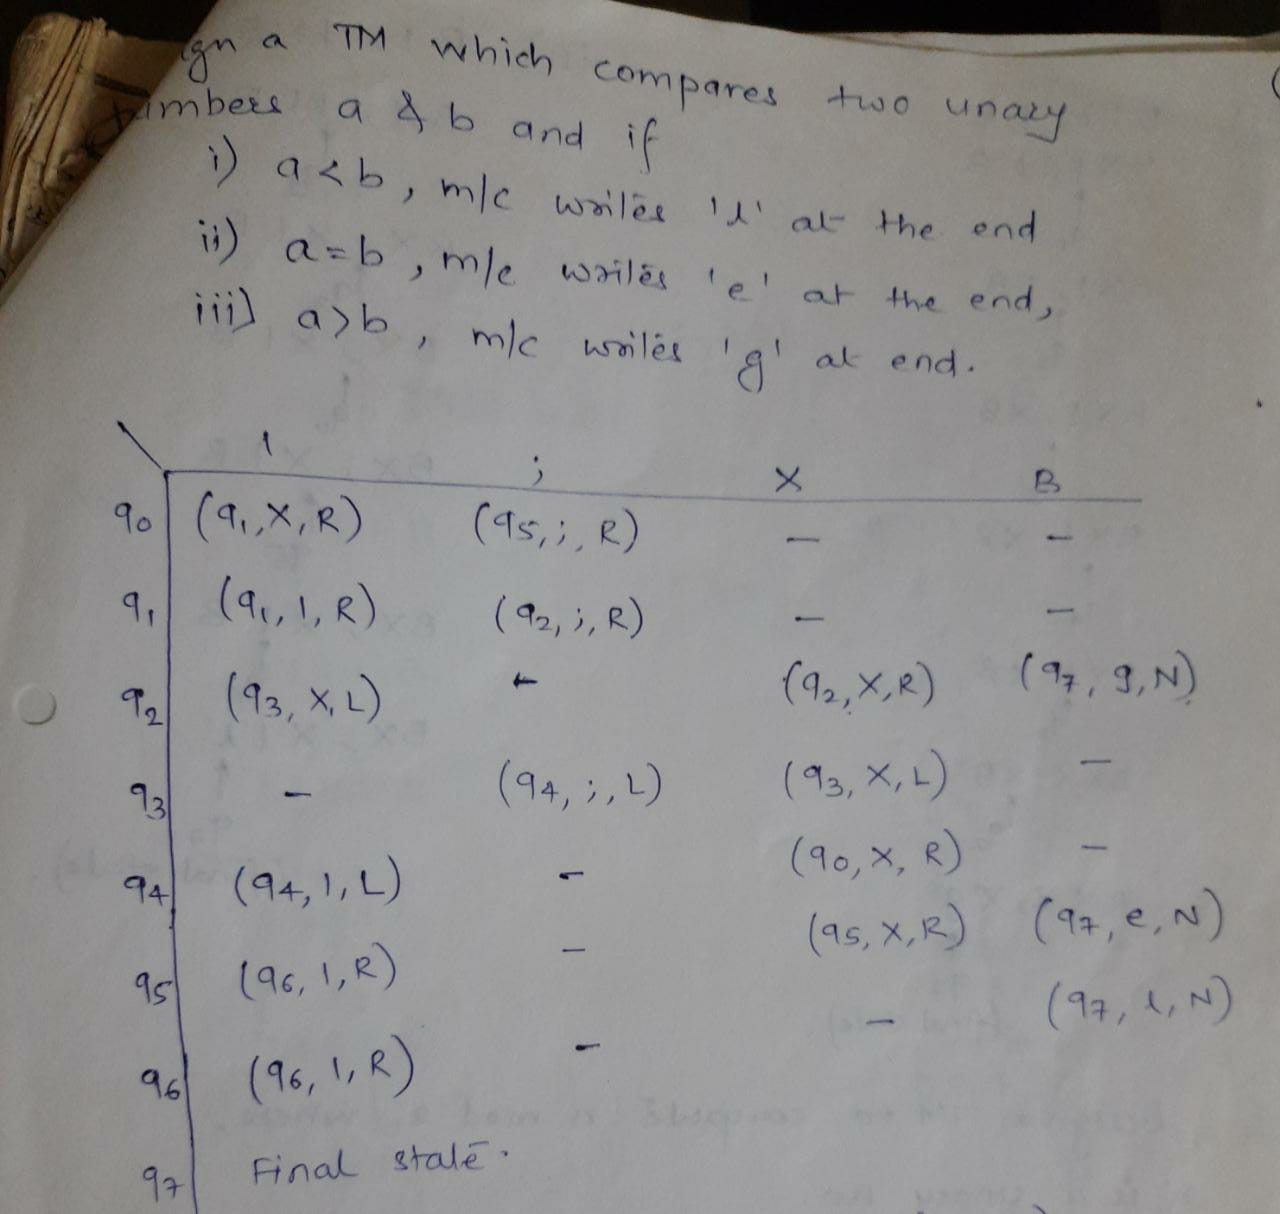 ign a TM which compares two unary
numbers a & b and if
i) a<b, m/c writes 'l' at the end
ii) a=b, m/c writes 'e' at the end,
iii) a>b, m/c writes 'g' at end.
1 ; X B
q0 (q1,X,R) (q5,;,R) – –
q1 (q1,1,R) (q2,;,R) – –
q2 (q3,X,L) – (q2,X,R) (q7,g,N)
q3 – (q4,;,L) (q3,X,L) –
q4 (q4,1,L) – (q0,X,R) –
q5 (q6,1,R) – (q5,X,R) (q7,e,N)
q6 (q6,1,R) – – (q7,l,N)
q7 Final state.